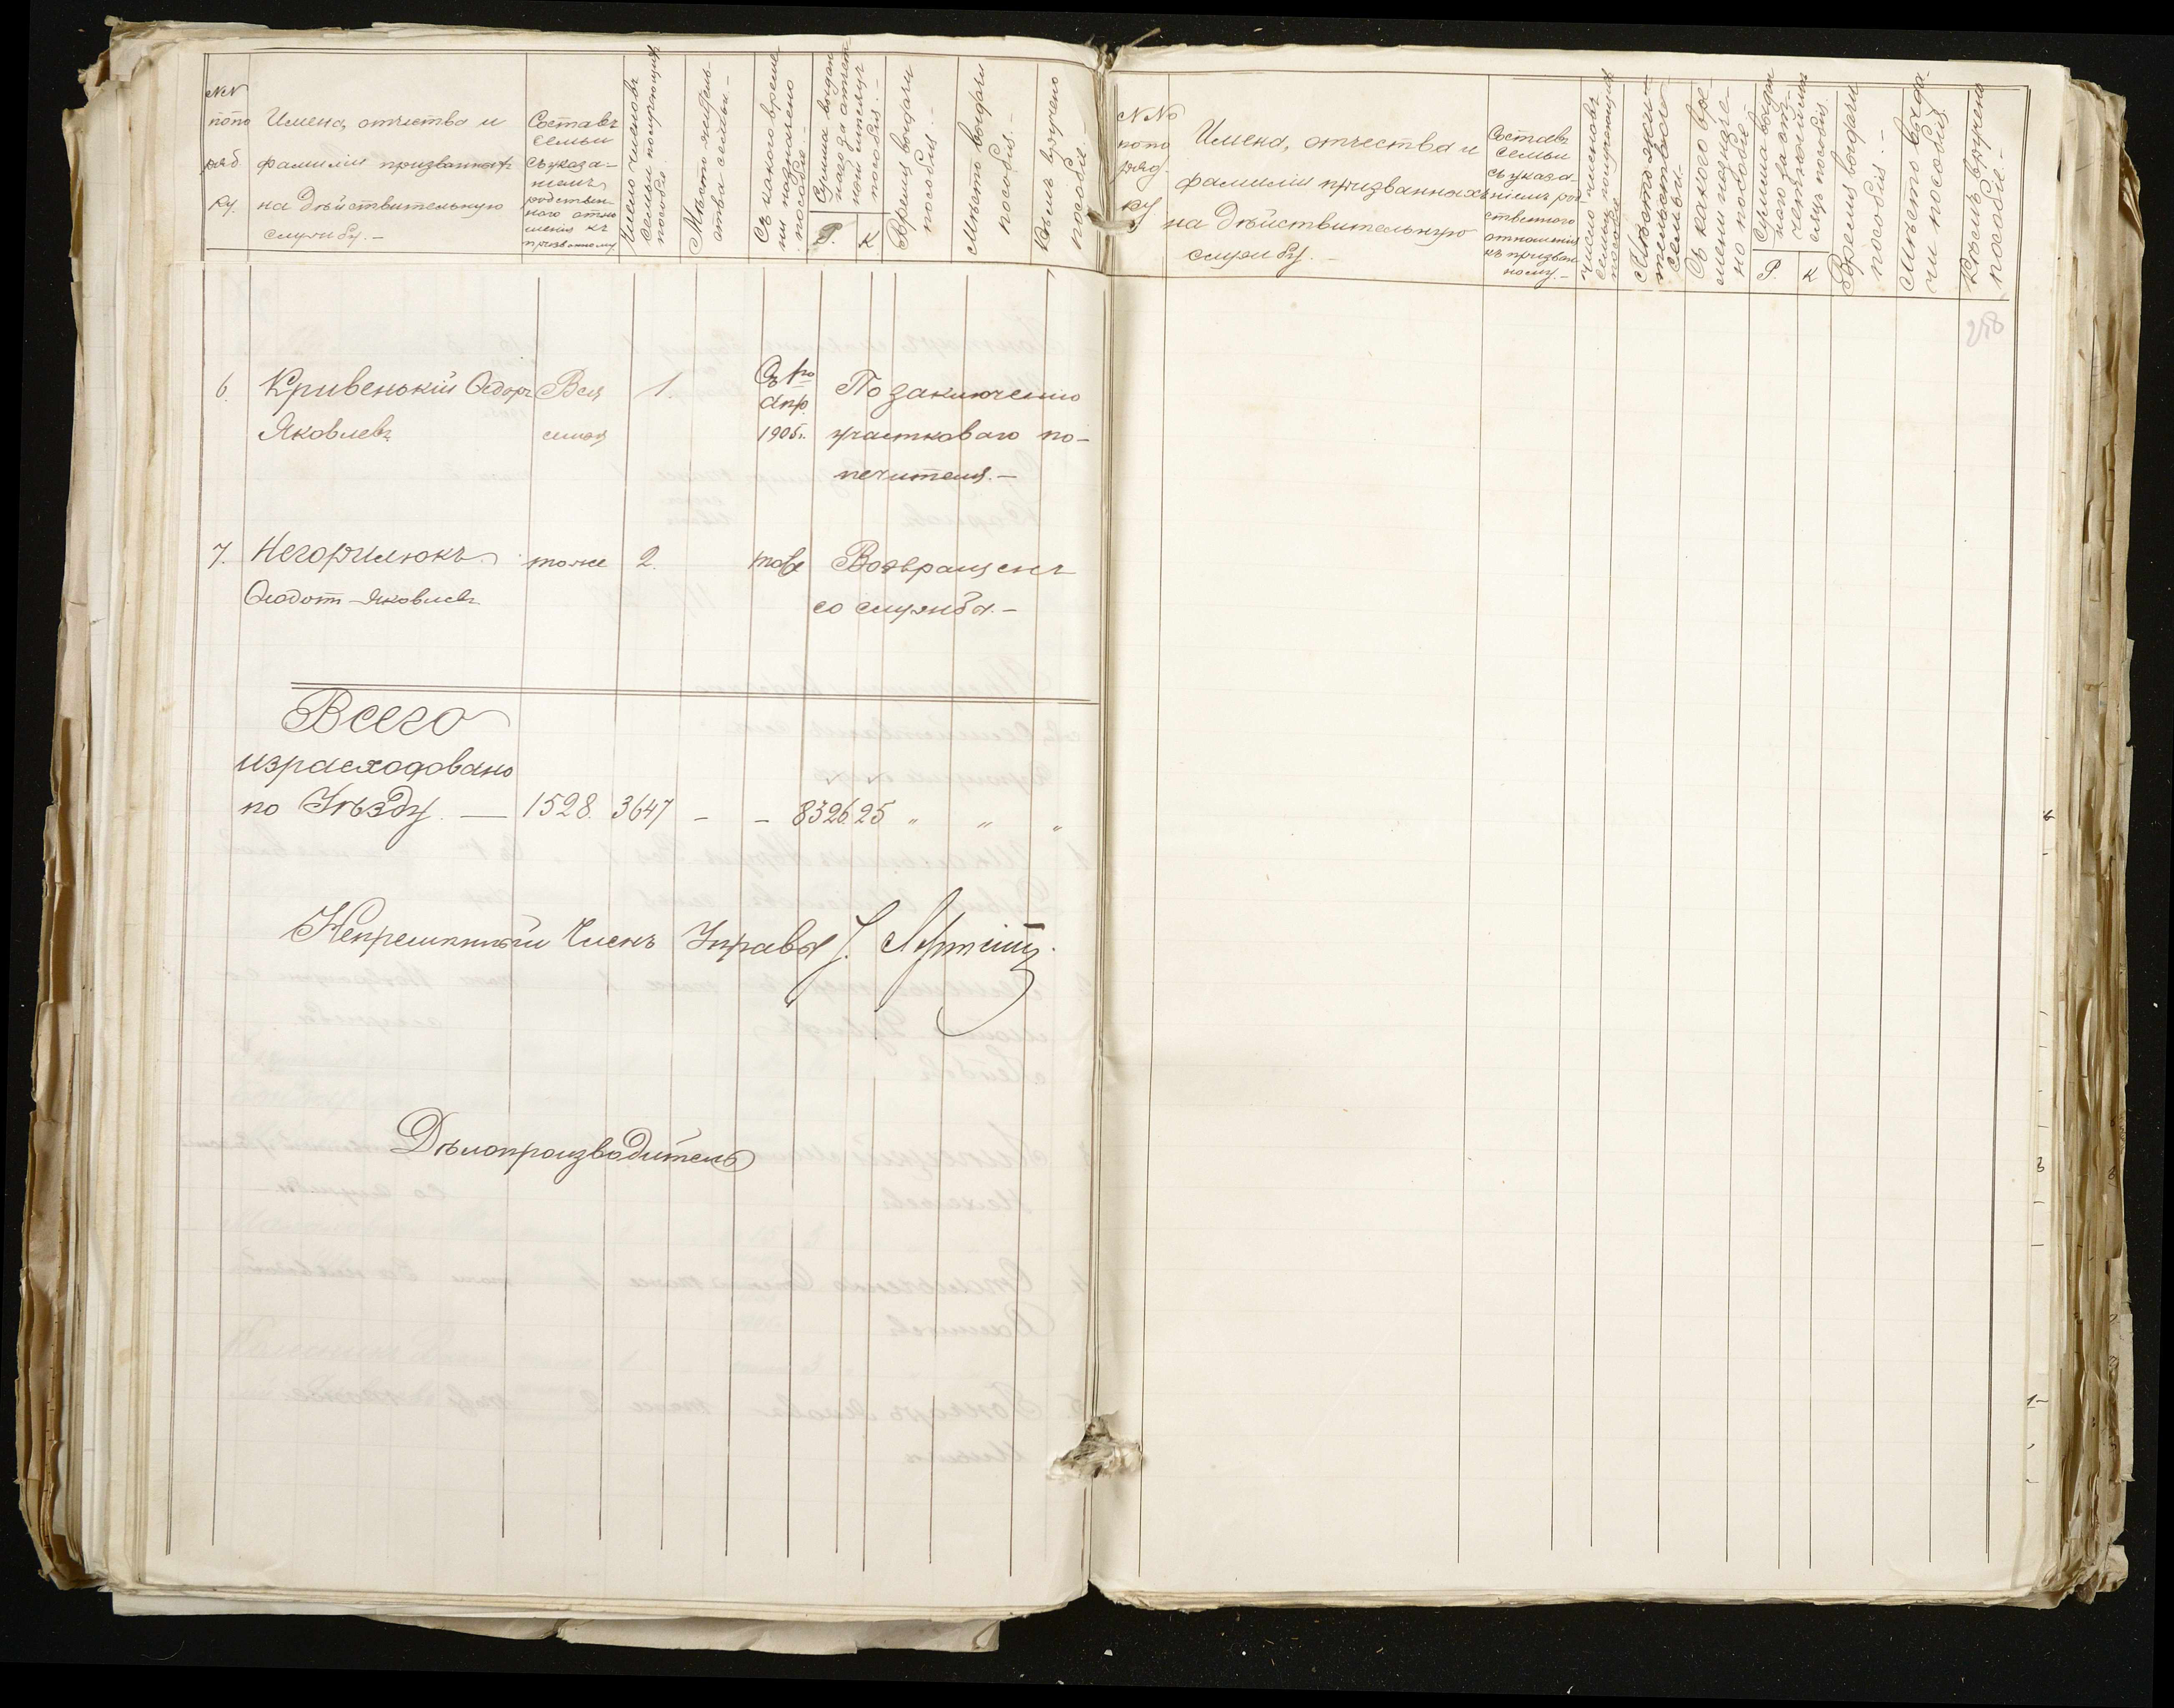 №№ по поряд ку.
Имена, отчества и
фамиліи призванныхъ
на дѣйствительную
службу. —
Составъ
семьи
съ указа-
ніемъ
родствен-
наго отно
шенія къ
призванному
Число членовъ
семьи получающихъ
пособіе
Мѣсто житель-
ства семьи. —
Съ какого време
ни назначено
пособіе. —
Сумма выдан
наго за отчет-
ный мѣсяцъ
пособія. —
Р. К
Время выдачи
пособія. —
Мѣсто выдачи
пособія. —
Кѣмъ вручено
пособіе. —
6. Кривенькій Ѳедоръ Вся 1. Съ 1го По заключенію
апр.
Яковлевъ семья 1905г. участковаго по-
печителя. —
7. Негорилюкъ тоже 2. тоже Возвращенъ
Ѳеодотъ Яковлевъ со службы. —
Всего
израсходовано
по Уѣзду. — 1528. 3647 — — 8326 25 " " "
Непремѣнный Членъ Управы
Дѣлопроизводитель
№№
по по
ряд.
ку
Имена, отчества и
фамиліи призванныхъ
на дѣйствительную
службу. —
Составъ
семьи
съ указа-
ніемъ род
ственнаго
отношенія
къ призван
ному. —
Число членовъ
семьи получающихъ
пособіе
Мѣсто жи-
тельства
семьи. —
Съ какого вре-
мени назначе-
но пособіе
Сумма выдан
наго за от-
четный мѣ-
сяцъ пособія.
Р. К
Время выдачи
пособія. —
Мѣсто выда-
чи пособія
Кѣмъ вручено
пособіе. —